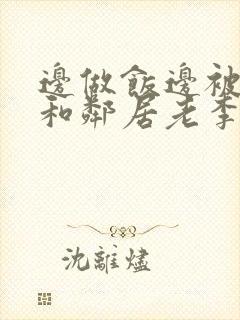 邊做飯邊被
和鄰居老李
沈離燼